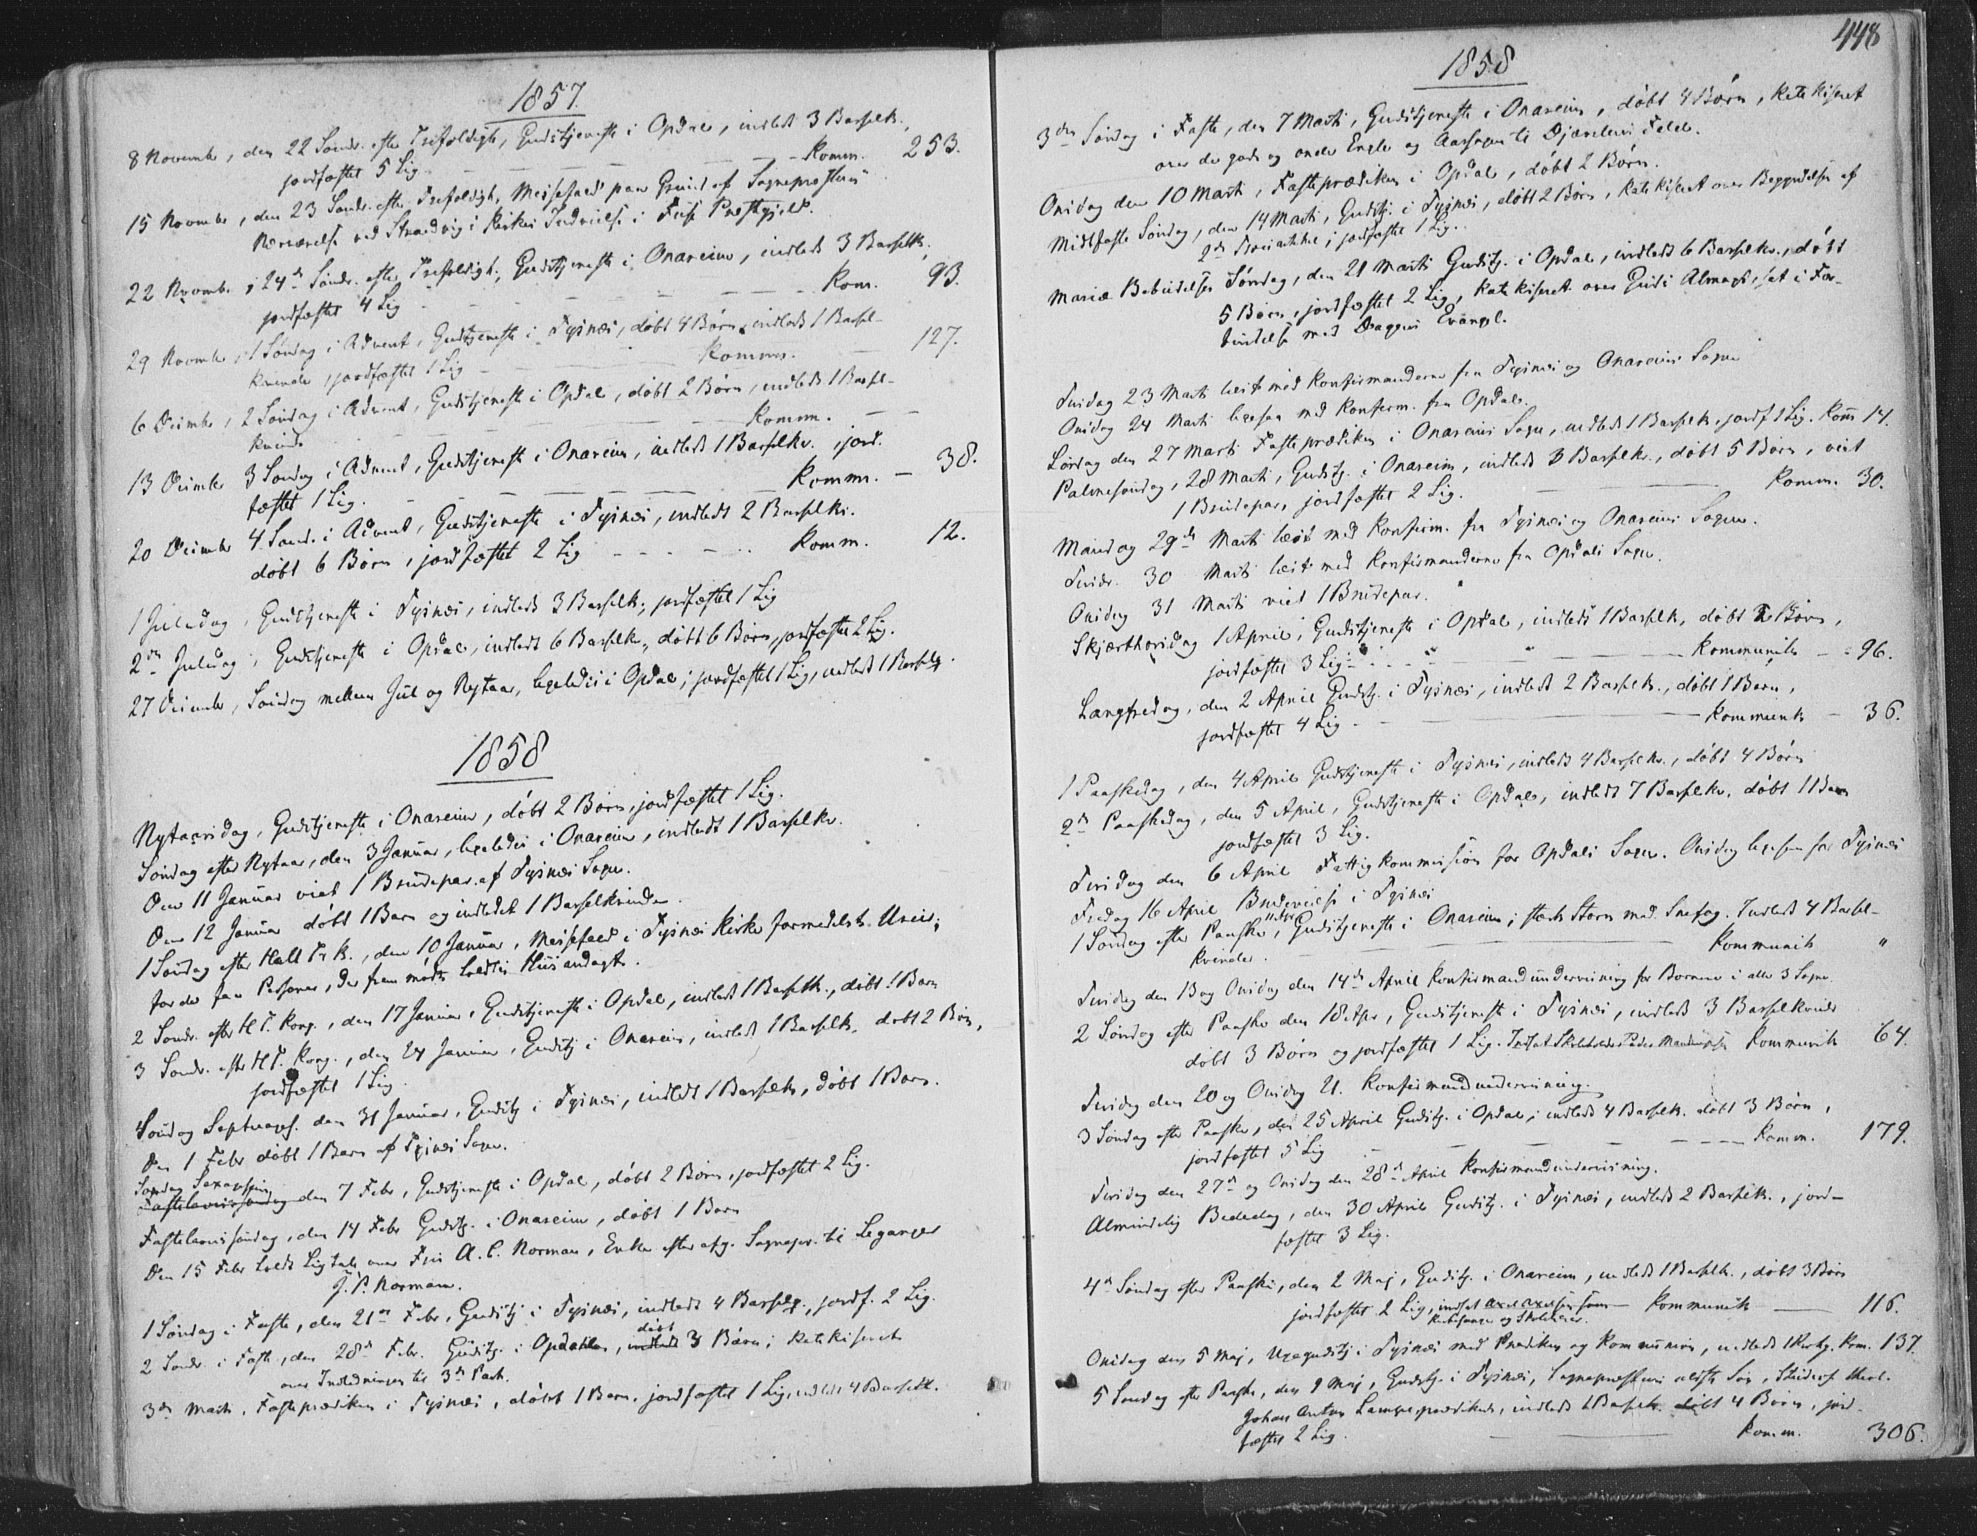 1857.
8 Novembr, den 22 Sønd. efter Trefoldigh, Gudstjeneste i Opdal, indledt 3 Barselk.,
jordfæstet 5 Lig. — — — Komm. 253.
15 Novembr, den 23 Sønd. efter Trefoldigh, Messefald paa Grund af Sognepræstens
Nærværelse ved Strandvigs Kirkes Indvielse i Fuse Præstgjeld.
22 Novembr, 24de Sønd. efter Trefoldigh, Gudstjeneste i Onareim, indledt 3 Barselk,
jordfæstet 4 Lig — — — Kom. 93.
29 Novembr, 1 Søndag i Advent, Gudstjeneste i Tysnæs, døbt 4 Børn, indledt 1 Barsel-
kvinde, jordfæstet 1 Lig — Komm. — 127.
6 Decembr, 2 Søndag i Advent, Gudstjeneste i Opdal, døbt 2 Børn, indledt 1 Barsel-
kvinde — — — Komm. — —
13 Decembr 3 Søndag i Advent, Gudstjeneste i Onareim, indledt 1 Barselkv., jord-
fæstet 1 Lig. — — — Komm. — 38.
20 Decembr 4 Sønd. i Advent, Gudstjeneste i Tysnæs, indledt 2 Barselkv.
døbt 6 Børn, jordfæstet 2 Lig — — — Komm. 12.
1 Juledag, Gudstjeneste i Tysnæs, indledt 3 Barselk, jordfæstet 1 Lig
2den Juledag, Gudstjeneste i Opdal, indledt 6 Barselkv, døbt 6 Børn, jordfæstet 2 Lig.
27 Decembr, Søndag mellem Jul og Nytaar, ligeledes i Opdal, jordfæstet 1 Lig, indledt 1 Barselq.
1858
Nytaarsdag, Gudstjeneste i Onareim, døbt 2 Børn, jordfæstet 1 Lig.
Søndag efter Nytaar, den 3 Januar, ligeledes i Onareim, indledt 1 Barselkv.
Den 11 Januar viet 1 Brudepar af Tysnæs Sogn.
Den 12 Januar døbt 1 Barn og indledet 1 Barselkvinde.
1 Søndag efter Hell. Tr. K., den 10 Januar, Messefald i Tysnæs Kirke formedelst Uveir;
for de faa Personer, der frem mødte holdtes Husandagt.
2 Sønd. efter H. T. Kong., den 17 Januar, Gudstjeneste i Opdal, indledt 1 Barselk., døbt 1 Barn
3 Sønd. efter H. T. Kong., den 24 Januar, Gudstj i Onareim, indledt 1 Barselk. døbt 2 Børn,
jordfæstet 1 Lig.
Søndag Septuages. den 31 Januar, Gudstj i Tysnæs, indledt 1 Barselk, døbt 1 Barn.
Den 1 Febr døbt 1 Barn af Tysnæs Sogn.
Søndag Sexagesima
Fastelavnssøndag den 7 Febr, Gudstjeneste i Opdal, døbt 2 Børn, jordfæstet 2 Lig.
Fastelavnssøndag, den 14 Febr Gudstj. i Onareim, døbt 1 Barn
Den 15 Febr holdt Ligtale over Fru A. C. Norman, Enke efter afg. Sognepr. til Leganger
J. P. Norman.
1 Søndag i Faste, den 21de Febr, Gudstj i Tysnæs, indledt 4 Barselq., jordf. 2 Lig.
2 Sønd. i Faste, den 28de Febr. Gudstj. i Opdahl, indledt døbt 3 Børn; katekiseret
over Indledningen til 3de Part.
3de Marts, Fasteprædiken i Tysnæs, døbt 1 Barn, jordfæstet 1 Lig, indledt 4 Barselk.
448
1858
3die Søndag i Faste, den 7 Marts, Gudstjeneste i Onareim, døbt 4 Børn, katekiseret
over de gode og onde Engle og Aarsagen til Djævelens Fald.
Onsdag den 10 Marts, Fasteprædiken i Opdal, døbt 2 Børn.
Midtfaste Søndag, den 14 Marts, Gudstj. i Tysnæs, døbt 2 Børn, katekiseret over Begyndelsen af
2den Troesartikkel; jordfæstet 1 Lig.
Mariæ Bebudelses Søndag, den 21 Marts Gudstj. i Opdal, indledt 6 Barselkv., døbt
5 Børn, jordfæstet 2 Lig, katekiseret over Guds Almagt, sat i For-
bindelse med Dagens Evangel.
Tirsdag 23 Marts læst med Konfirmanderne fra Tysnæs og Onareims Sogne
Onsdag 24 Marts ligesaa med Konfirm. fra Opdal.
Lørdag den 27 Marts Fasteprædiken i Onareims Sogn, indledt 1 Barselk, jordf 1 Lig. Kom 14.
Palmesøndag, 28 Marts, Gudstj. i Onareim, indledt 3 Barselk., døbt 5 Børn, viet
1 Brudepar, jordfæstet 2 Lig. — — Komm. 30.
Mandag 29de Marts læst med Konfirm. fra Tysnæs og Onareims Sogne.
Tirsd. 30 Marts læst med Konfirmanderne fra Opdals Sogn.
Onsdag 31 Marts viet 1 Brudepar.
Skjærthorsdag 1 April, Gudstjeneste i Opdal, indledt 1 Barselk, døbt 2 Børn,
jordfæstet 3 Lig — — Kommunik — 96.
Langfredag, den 2 April Gudstj. i Tysnæs, indledt 2 Barselk., døbt 1 Barn,
jordfæstet 4 Lig. — — Kommunk — 36.
1 Paaskedag, den 4 April Gudstjeneste i Tysnæs, indledt 4 Barselkv., døbt 4 Børn
2den Paaskedag, den 5 April, Gudstjeneste i Opdal, indledt 7 Barselkv. døbt 1 Barn
jordfæstet 3 Lig.
Tirsdag den 6 April Fattigkommission for Opdals Sogn. Onsdag ligesaa for Tysnæs
Fredag 16 April Brudevielse i Tysnæs
1 Søndag efter Paaske, Gudstjeneste i Onareim; stærk Storm med Snefog. Indledt 4 Barsel-
kvinder. — — Kommunik "
Tirsdag den 13 og Onsdag den 14de April Konfirmandundervisning for Børnene i alle 3 Sogne
2 Søndag efter Paaske den 18 Apr, Gudstjeneste i Tysnæs, indledt 3 Barselkvinder
døbt 3 Børn og jordfæstet 1 Lig. Indsat Skoleholder Peder Kommunik 64.
Tirsdag den 20 og Onsdag 21. Konfirmandundervisning.
3 Søndag efter Paaske, den 25 April Gudstj. i Opdal, indledt 4 Barselk. døbt 3 Børn,
jordfæstet 5 Lig — — — Komm. 179.
Tirsdag den 27de og Onsdag den 28de April Konfirmandundervisning.
Almindelig Bededag, den 30 April Gudstj. i Tysnæs, indledt 2 Barselk., jord-
fæstet 3 Lig.
4de Søndag efter Paaske, den 2 Maj, Gudstj. i Onareim, indledt 1 Barselk., døbt 3 Børn
jordfæstet 2 Lig, indsat som — Kommunik — 116.
Kirkesanger og Skolelærer.
Onsdag den 5 Maj, Ugegudstj i Tysnæs med Prædiken og Kommunion, indledt 1 Kom. 137.
5 Søndag efter Paaske, den 9 Maj, Gudstj. i Tysnæs, Sognepræstens ældste Søn, Student theol.
Johan Anton Lampe, prædikede, indledt 6 Barselk. døbt 4 Børn, jord-
fæstet 2 Lig. — Komm. 306.